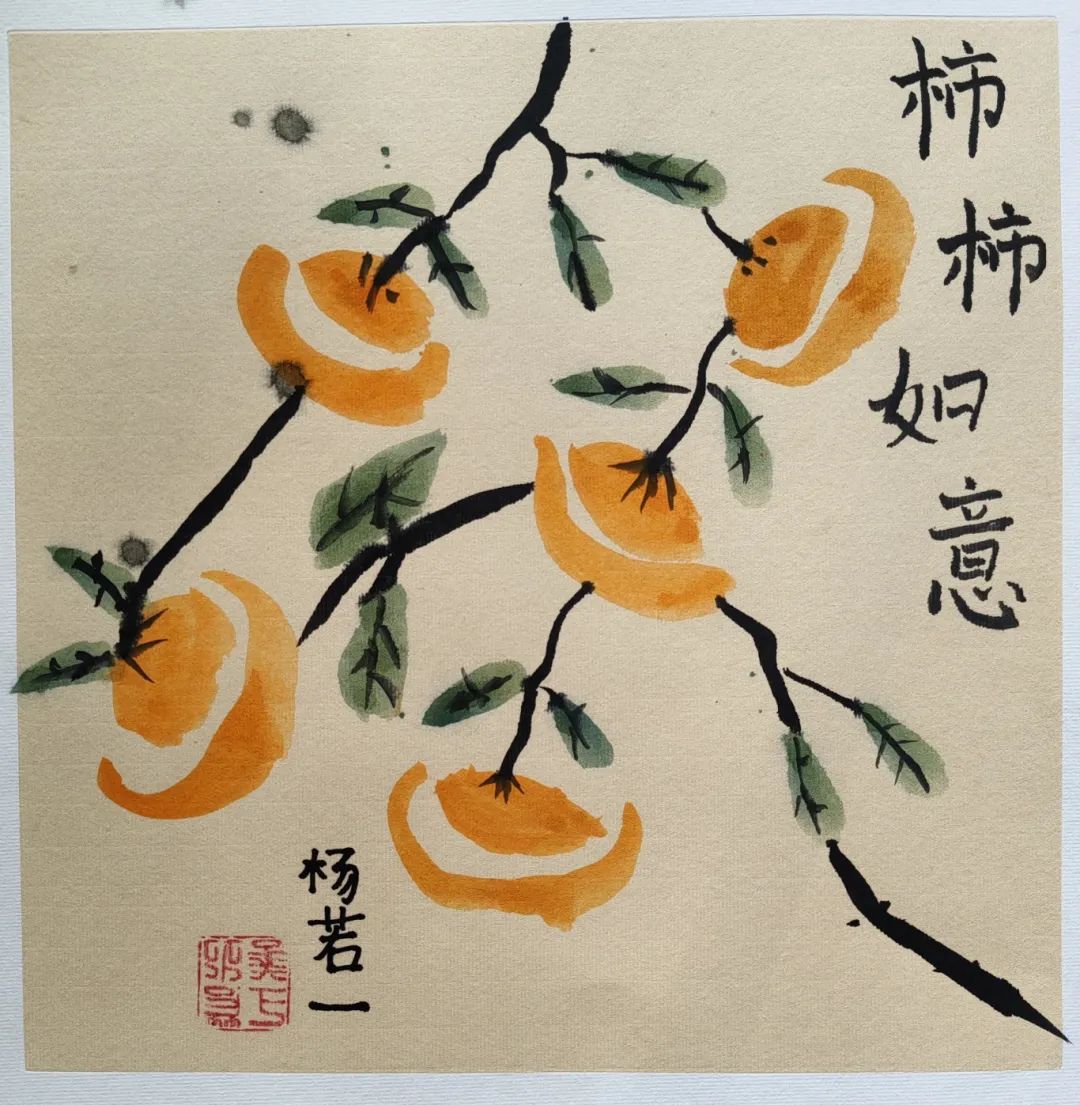 柿柿如意
杨若一